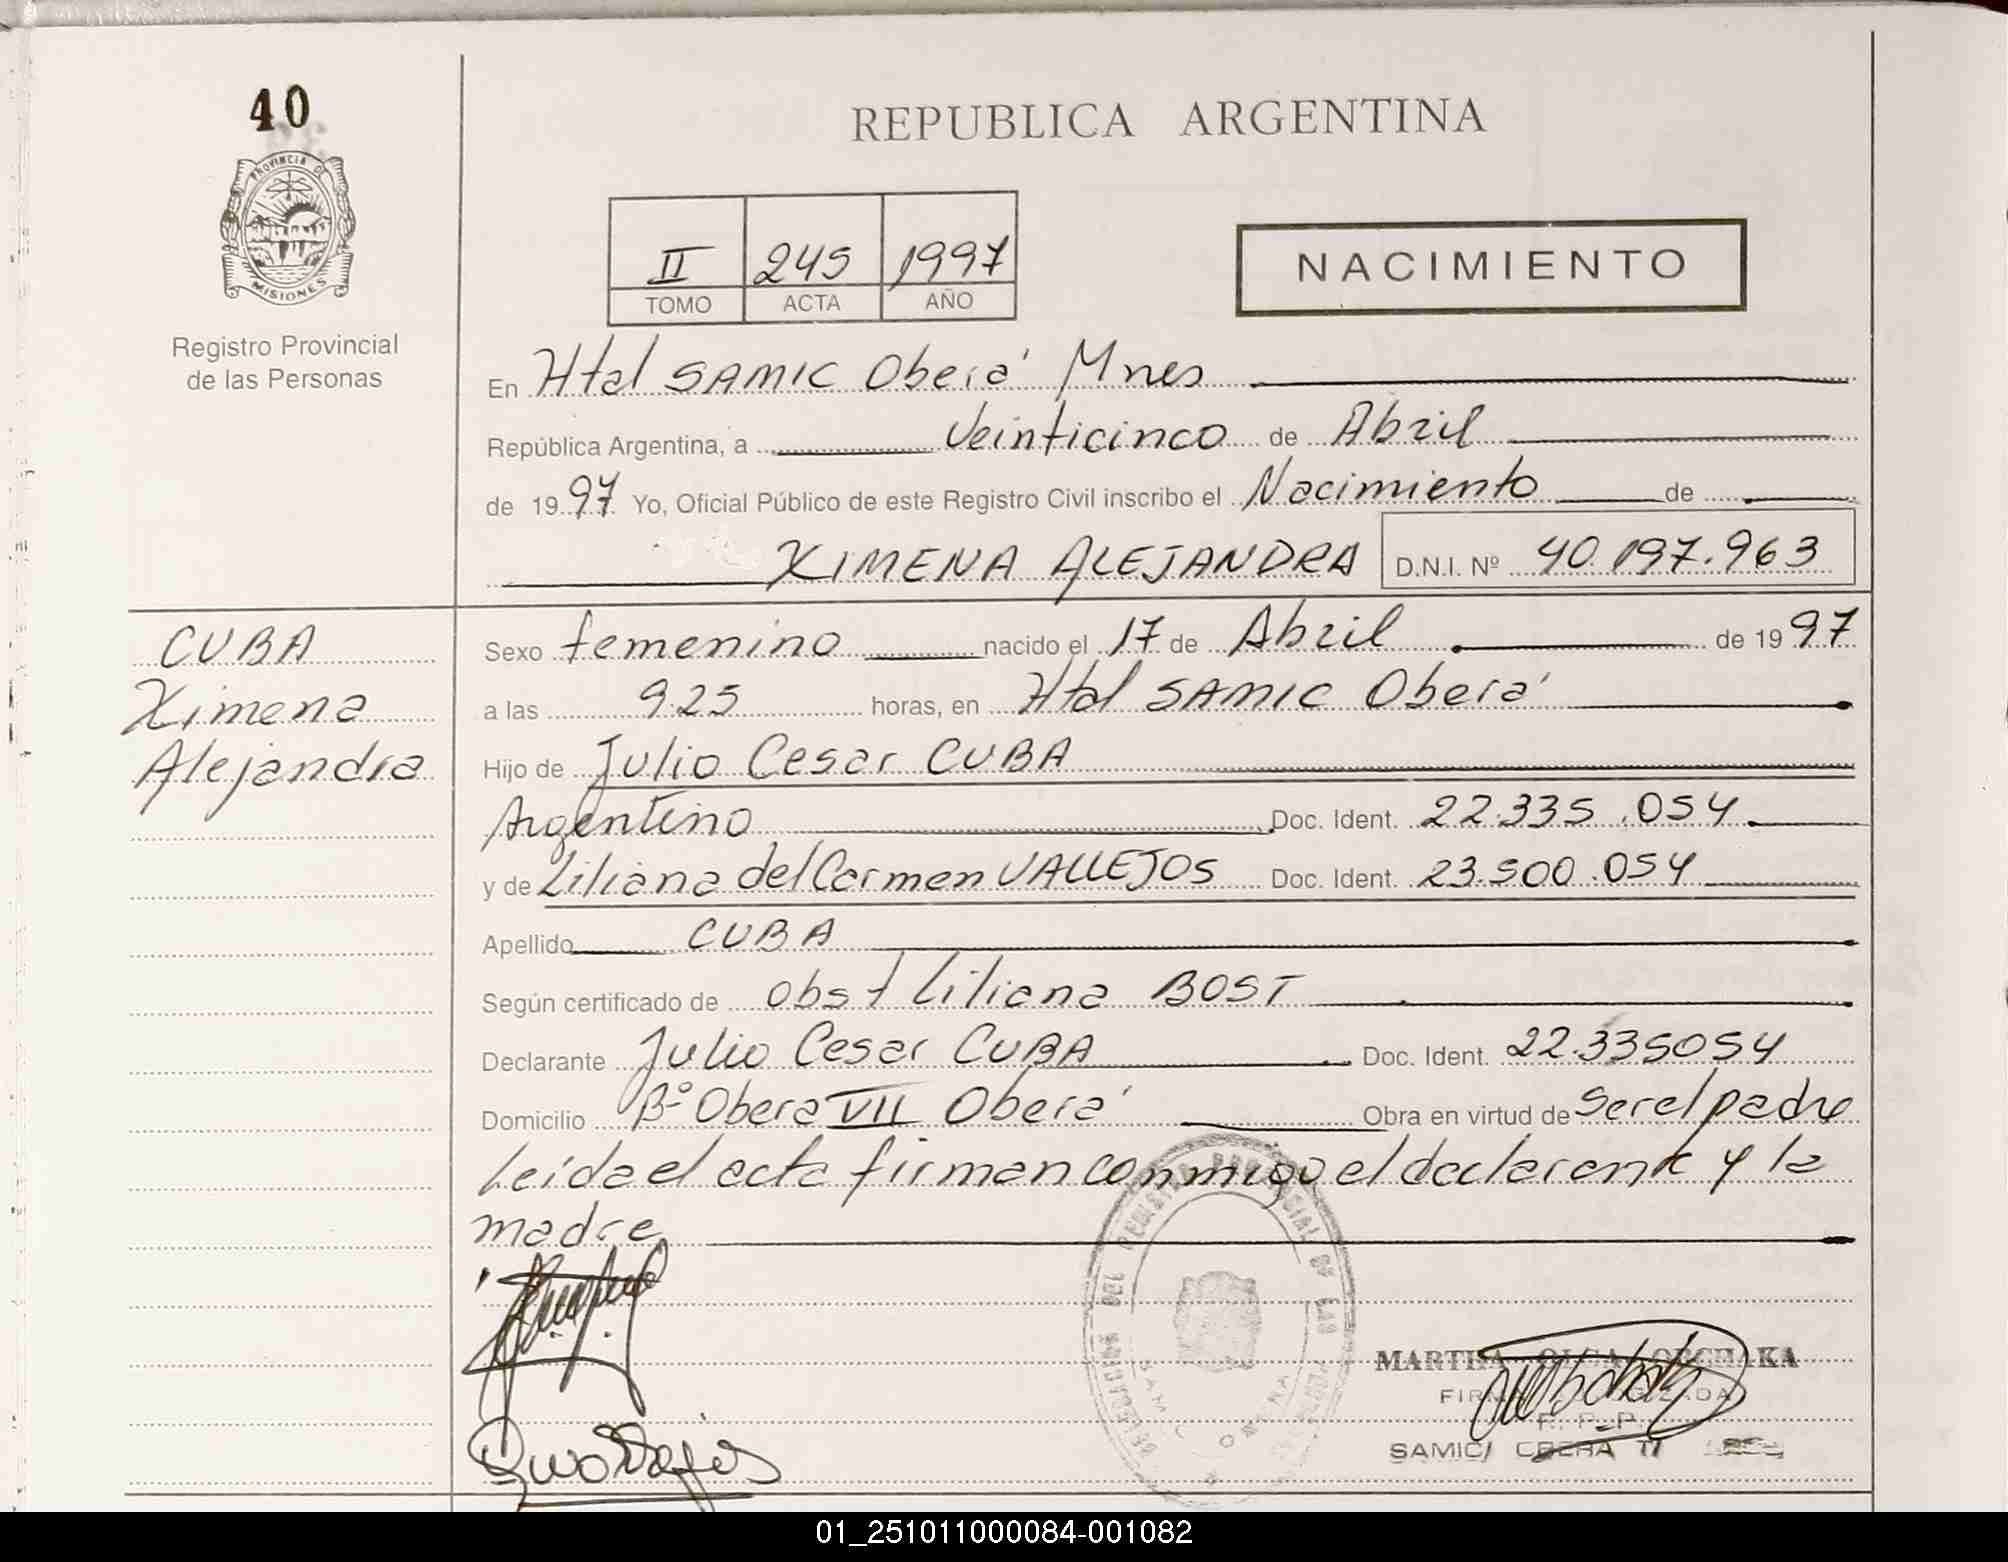 40
PROVINCIA DE
MISIONES
Registro Provincial
de las Personas
REPUBLICA ARGENTINA
II 245 1997
TOMO ACTA AÑO
NACIMIENTO
En Htal SAMIC Oberá Mnes
República Argentina, a Veinticinco de Abril
de 1997 Yo, Oficial Público de este Registro Civil inscribo el Nacimiento de
XIMENA ALEJANDRA D.N.I. Nº 40.197.963
CUBA
Ximena
Alejandra
Sexo femenino nacido el 17 de Abril de 1997
a las 9.25 horas, en Htal SAMIC Oberá
Hijo de Julio Cesar CUBA
Argentino Doc. Ident. 22.335.054
y de Liliana del Carmen VALLEJOS Doc. Ident. 23.500.054
Apellido CUBA
Según certificado de obst Liliana BOST
Declarante Julio Cesar CUBA Doc. Ident. 22.335054
Domicilio Bº Obera VII Oberá Obra en virtud de Ser el padre
Leida el acta firman conmigo el declarante y la
madre
DELEGACION DEL REGISTRO PROVINCIAL DE LAS
MARTHA OLGA
SAMIC OBERA
01_251011000084-001082